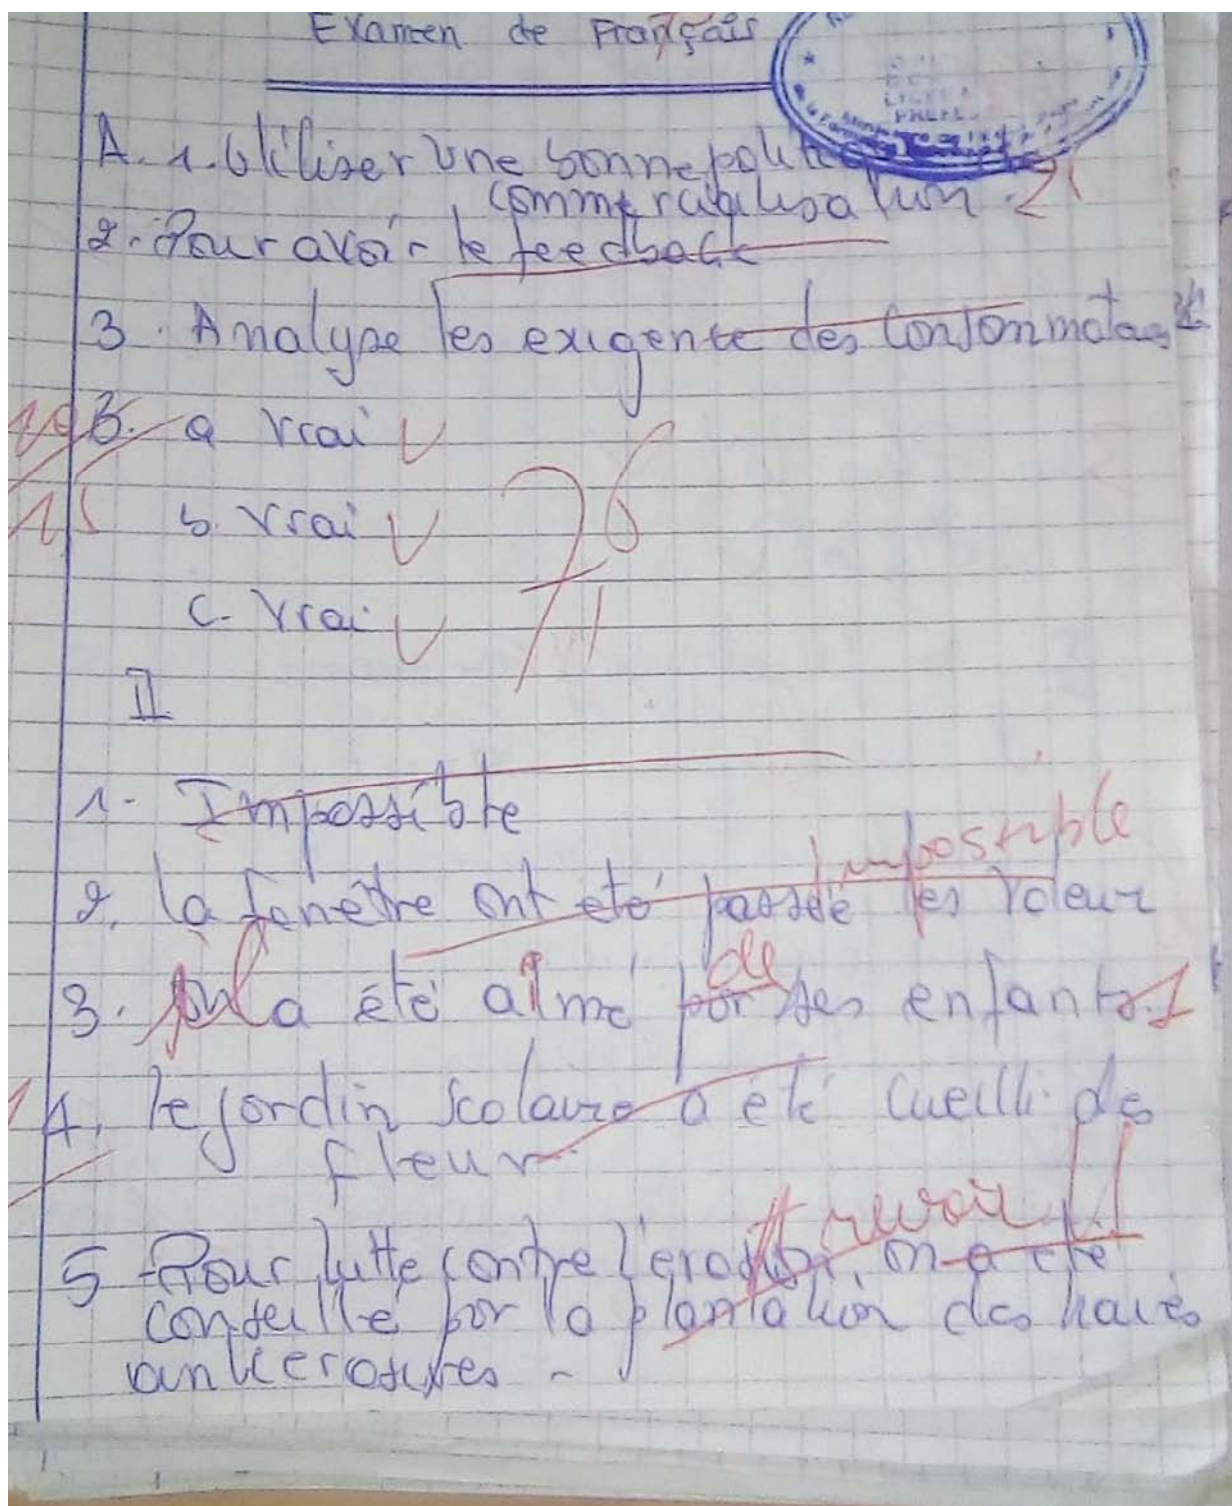 Examen de Français
A. 1. Utiliser une bonne
commercialisation. 2
2. Pour avoir le feedback
3. Analyse les exigente des
B. a vrai V
15 b. vrai V 76
c. vrai V
II
1. Impossible
impossible
2. la fenêtre ont été passée les voleur
de
3. a été aimé par ses enfants. 1
4. le jardin scolaire a été cueilli des
fleur
A revoir !!
5 Pour lutte contre l'erosion, on a été
conseillé par la plantation des haies
antierosives.